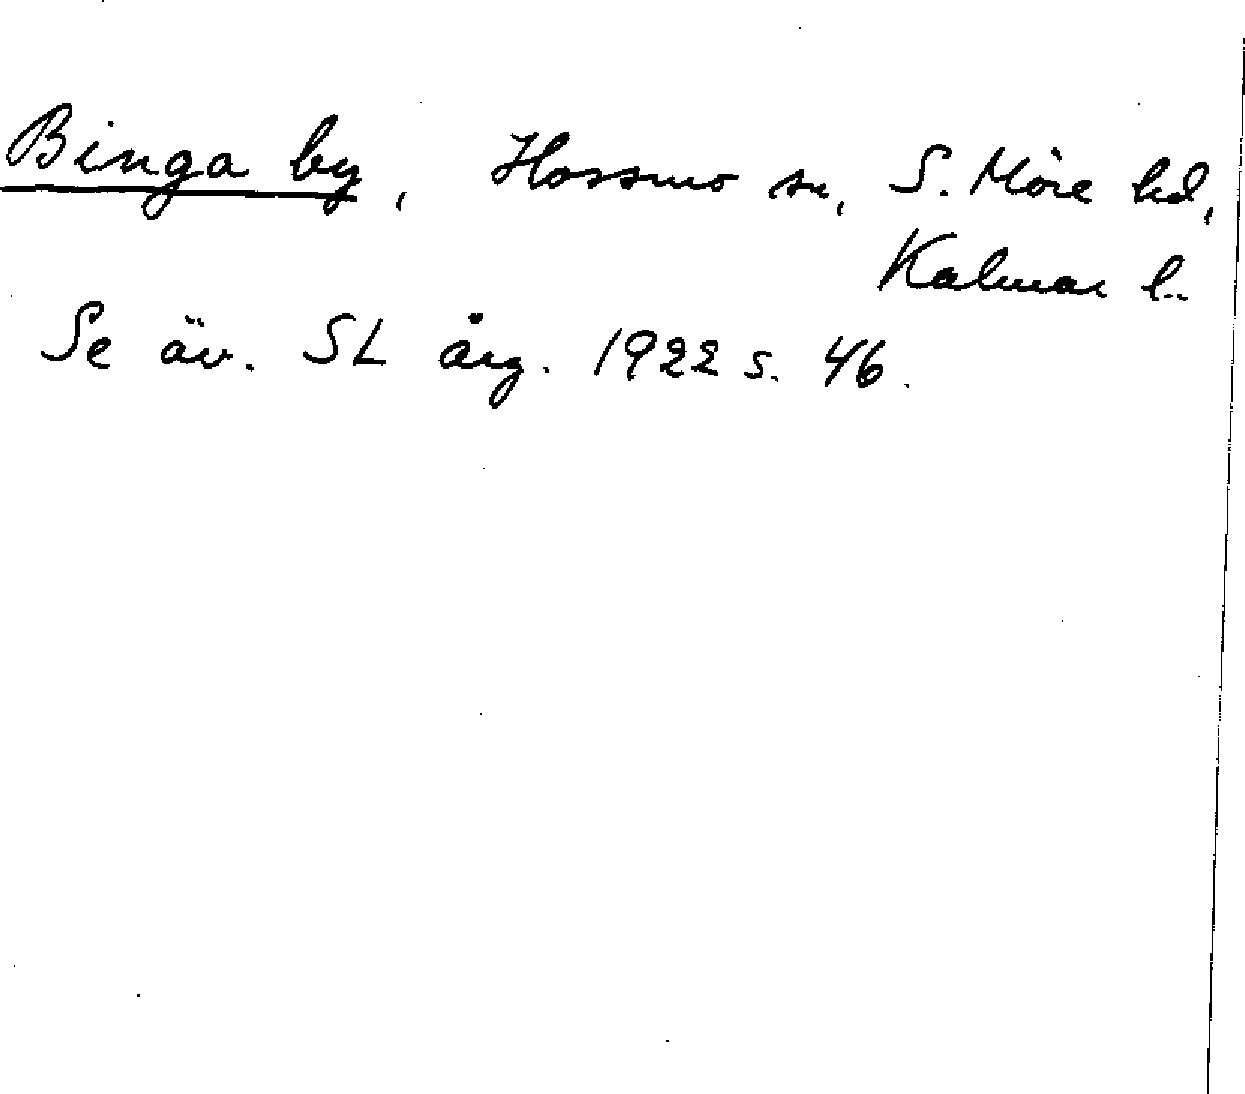 Binga by, Hossmo sn, S. Möre hd,
Kalmar l.
Se äv. SL årg. 1922 s. 46.